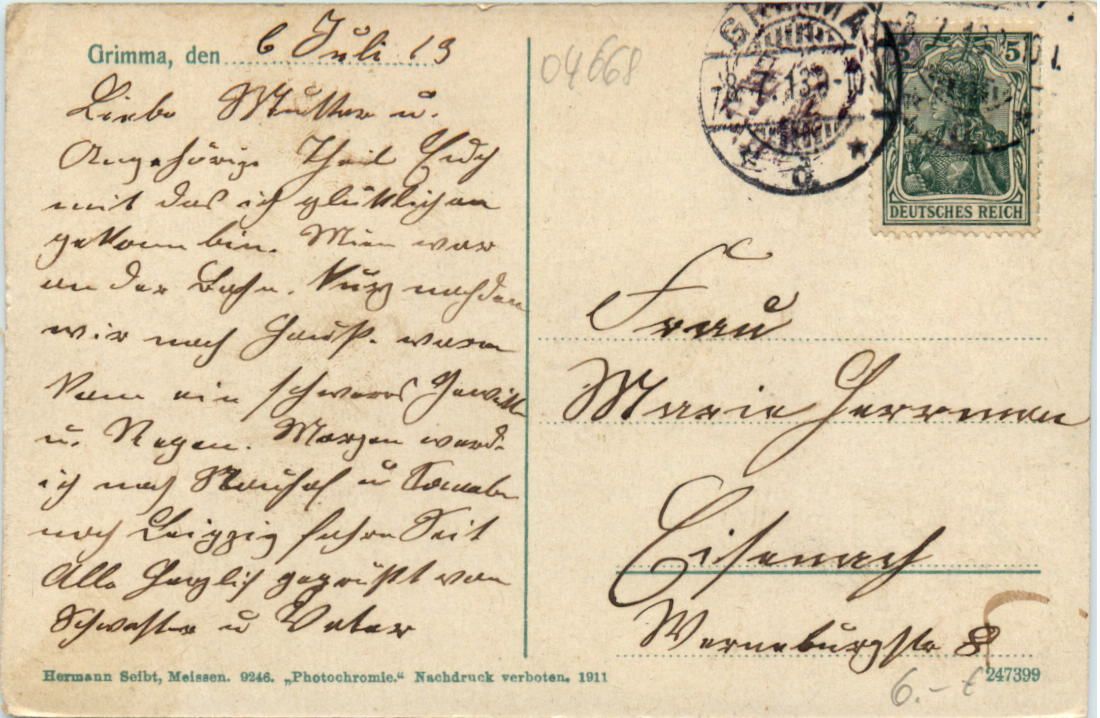 Grimma, den 6 Juli 13
04668
Liebe Mutter u.
Angehörige Theil Euch
mit das ich glücklich an
gekomm bin. Mien war
an der Bahn. Kurz nachdem
wir nach Hauß. waren
kam ein schweres Gewitter
u. Regen. Morgen werd.
ich nach Naunhof u
nach Leipzig fahren Seit
Alle Herzlich gegrüßt von
Schwester u Vater
GRIMMA
8.7.13.9-10
5
DEUTSCHES REICH
Frau
Marie Herrman
Eisenach
Werneburgstr 8
Hermann Seibt, Meissen. 9246. „Photochromie.“ Nachdruck verboten. 1911
247399
6.- €